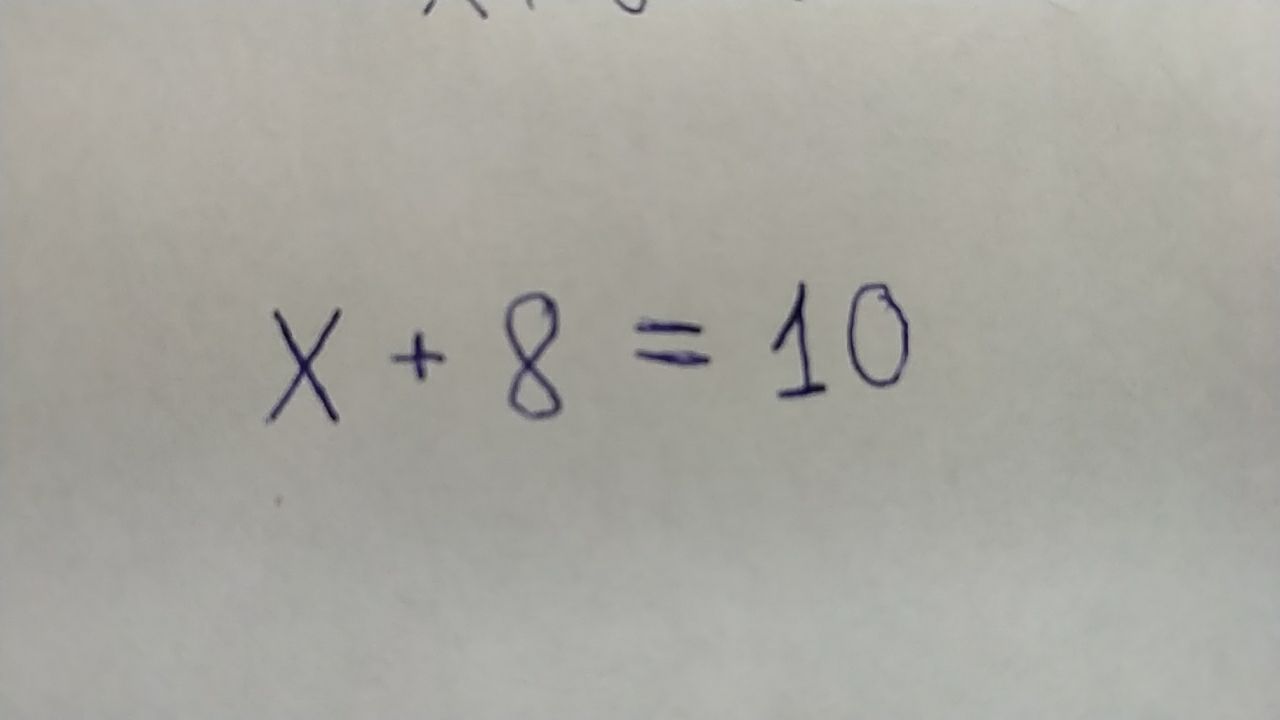 X + 8 = 10